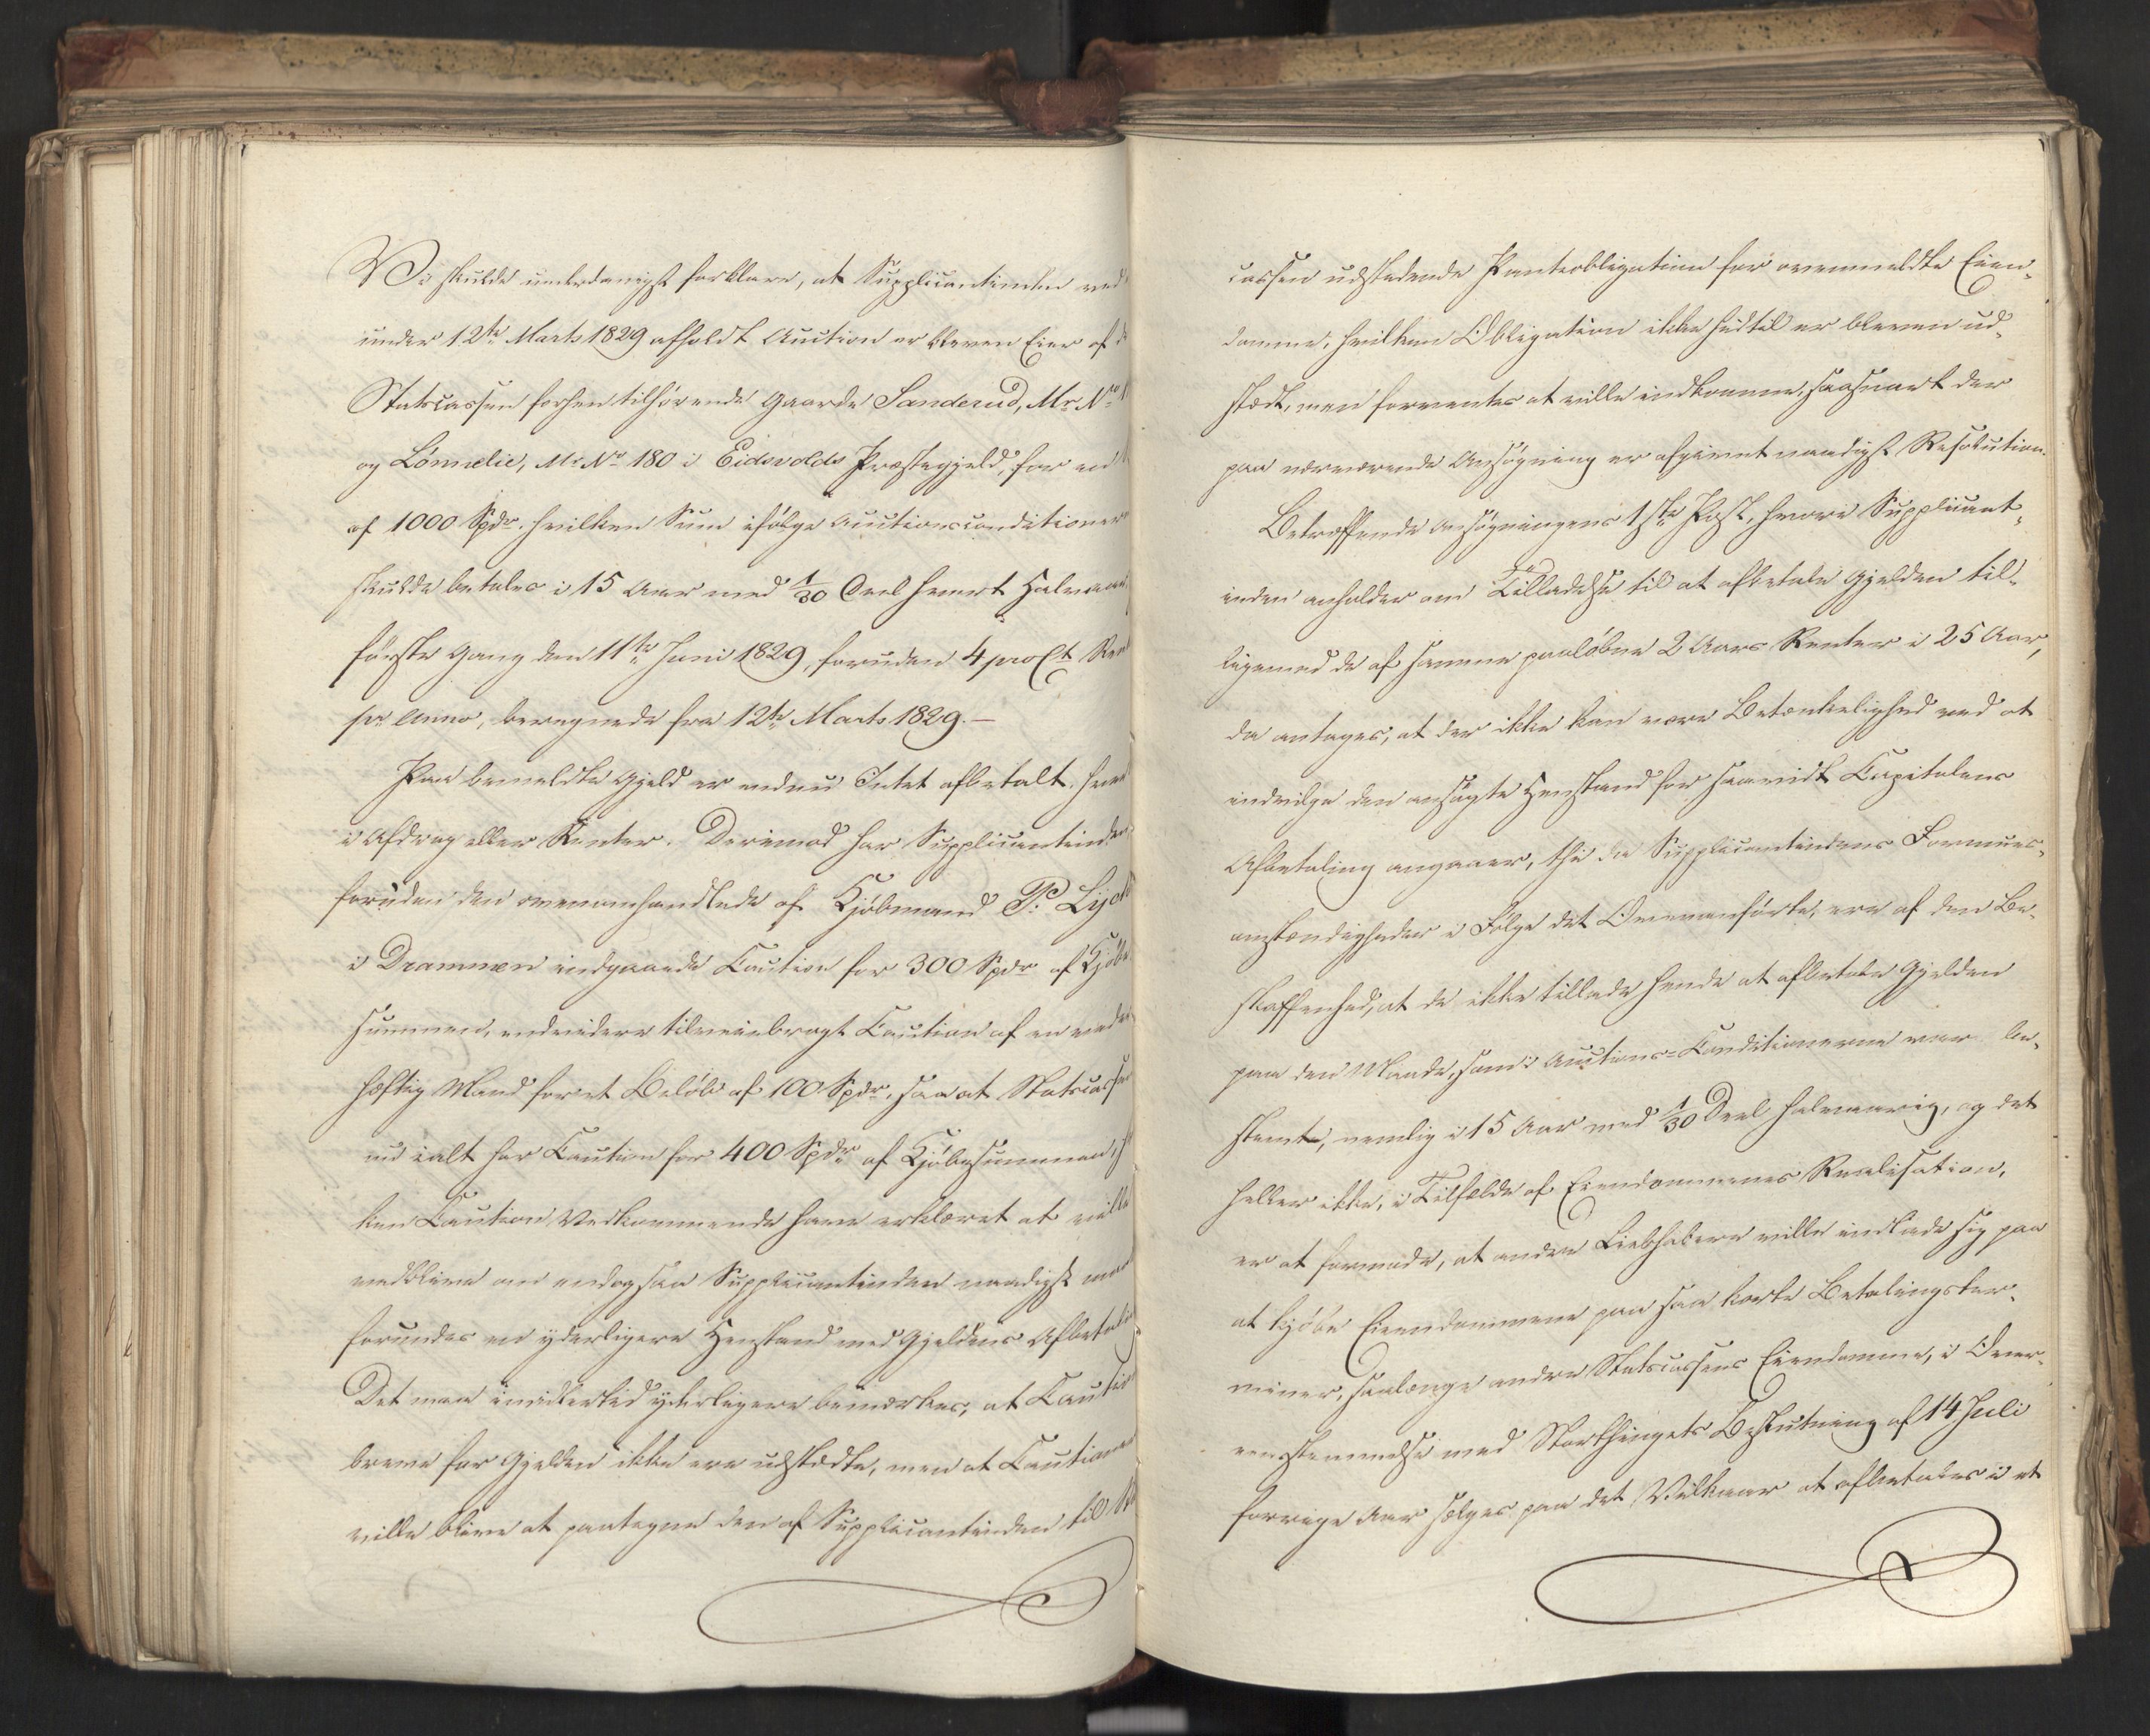 Vi skulde underdanigst forklare, at Supplicantinden ved
under 12te Marts 1829 afholdt Auction er bleven Eier af d
Statscassen forhen tilhørende Gaarde Sanderud, Mr. No.
og Lönnelie, Mr No 180 i Eidsvolds Præstegjeld, for en
af 1000 Spdr. hvilken Sum ifølge Auctionsconditioner
skulde betales i 15 Aar med 1/30 Deel hvert Halvaar
første Gang den 11te Juni 1829, foruden 4 pro Ct Ren
pr Anno, beregnede fra 12te Marts 1829.—
Paa bemeldte Gjeld er endnu Intet afbetalt, hver
i Afdrag eller Renter. Derimod har Supplicantinden
foruden den ovenomhandlede af Kjøbmand P. Lyck
i Drammen indgaaede Caution for 300 Spdr af Kjøbe
summen, endvidere tilveiebragt Caution af en vede
hæftig Mand for et Beløb af 100 Spdr, saa at Statscasse
nu ialt har Caution for 400 Spdr af Kjøbesummen, h
ken Caution Vedkommende have erklæret at ville
vedblive om endogsaa Supplicantinden naadigst maa
forundes en yderligere Henstand med Gjeldens Afbetali
Det maa imidlertid yderligere bemærkes, at Cautio
brevene for Gjelden ikke ere udstædte, men at Cautione
ville blive at paategne den af Supplicantinden til St
cassen udstedende Panteobligation for ovenmeldte Eien-
domme, hvilken Obligation ikke hidtil er bleven ud-
stædt, men forventes at ville indkomme, saasnart der
paa nærværende Ansøgning er afgivet naadigst Resolution.
Betræffende Ansøgningens 1ste Post, hvori Supplicant-
inden anholder om Tilladelse til at afbetale Gjelden til-
ligemed de af samme paaløbne 2 Aars Renter i 25 Aar,
da antages, at der ikke kan være Betænkelighed ved at
indvilge den ansøgte Henstand for saavidt Capitalens
Afbetaling angaaer, thi da Supplicantindens Formues-
omstændigheder i Følge det Ovenanførte, ere af den Be-
skaffenhed, at de ikke tillade hende at afbetale Gjelden
paa den Maade, som i Auctions-Conditionerne var be-
stemt, nemlig i 15 Aar med 1/30 Deel halvaarig, og det
heller ikke, i Tilfælde af Eiendommenes Realisation,
er at formode, at andre Liebhabere ville indlade sig paa
at kjøbe Eiendommene paa saa korte Betalingster-
miner, saalænge andre Statscassens Eiendomme, i Over-
eensstemmelse med Storthingets Beslutning af 14 Juli
forrige Aar sælges paa det Vilkaar at afbetales i et